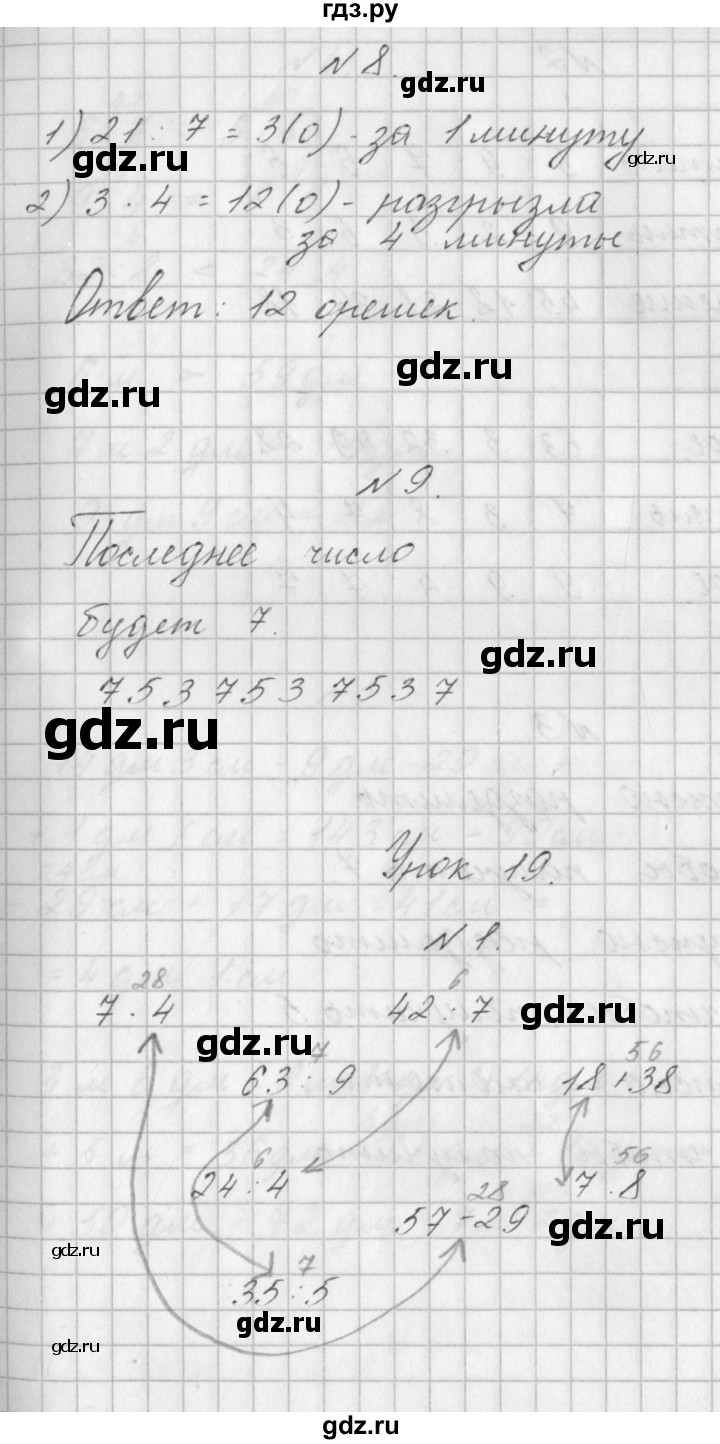 гдз.ру
N 8.
gdz.ru
1) 21 : 7 = 3(о) - за 1 минуту
gdz.ru
gdz.ru
2) 3 · 4 = 12(о) - разгрызла
за 4 минуты
Ответ: 12 орешек.
gdz.ru
gdz.ru
N 9.
Последнее число
будет 7.
gdz.ru
7 5 3 7 5 3 7 5 3 7
gdz.ru
Урок 19.
N 1.
28
6
7 · 4
42 : 7
gdz.ru
gdz.ru
7
56
63 : 9
18 + 38
6
56
24 : 4
7 · 8
28
57 - 29
gdz.ru
gdz.ru
7
35 : 5
gdz.ru
gdz.ru
gdz.ru